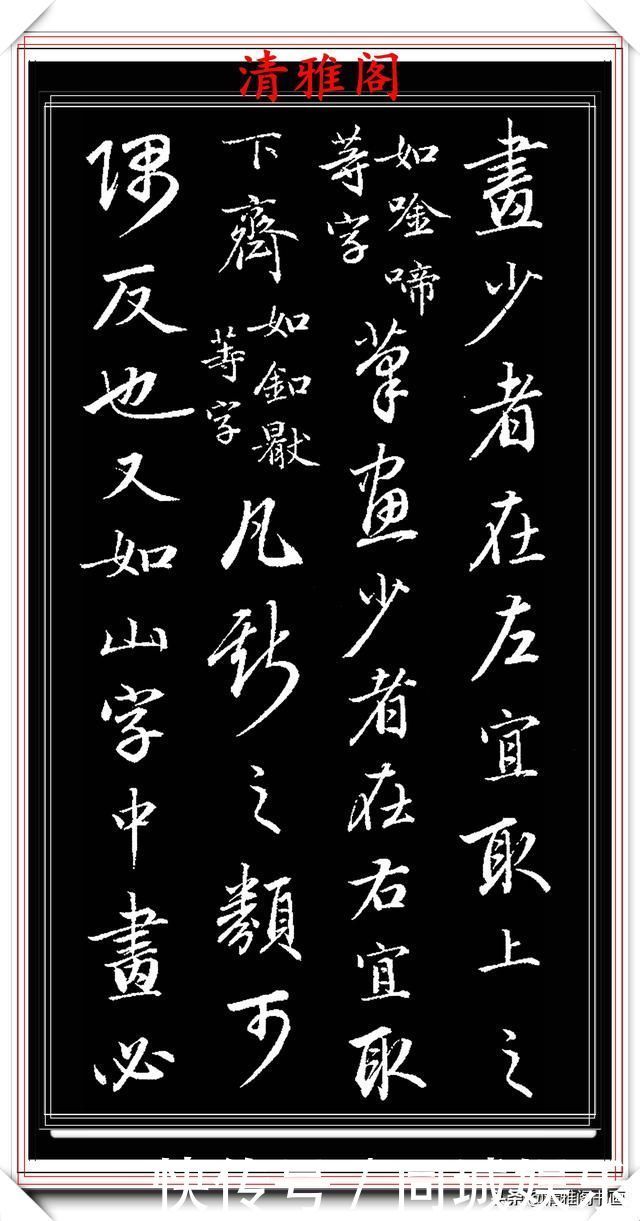 清雅阁
畫少者在左宜取上之
如唫啼
等字
筆畫少者在右宜取
下齊
如釦
等字
凡斯之類可
隅反也又如山字中畫必
快传号 / 同城娱乐